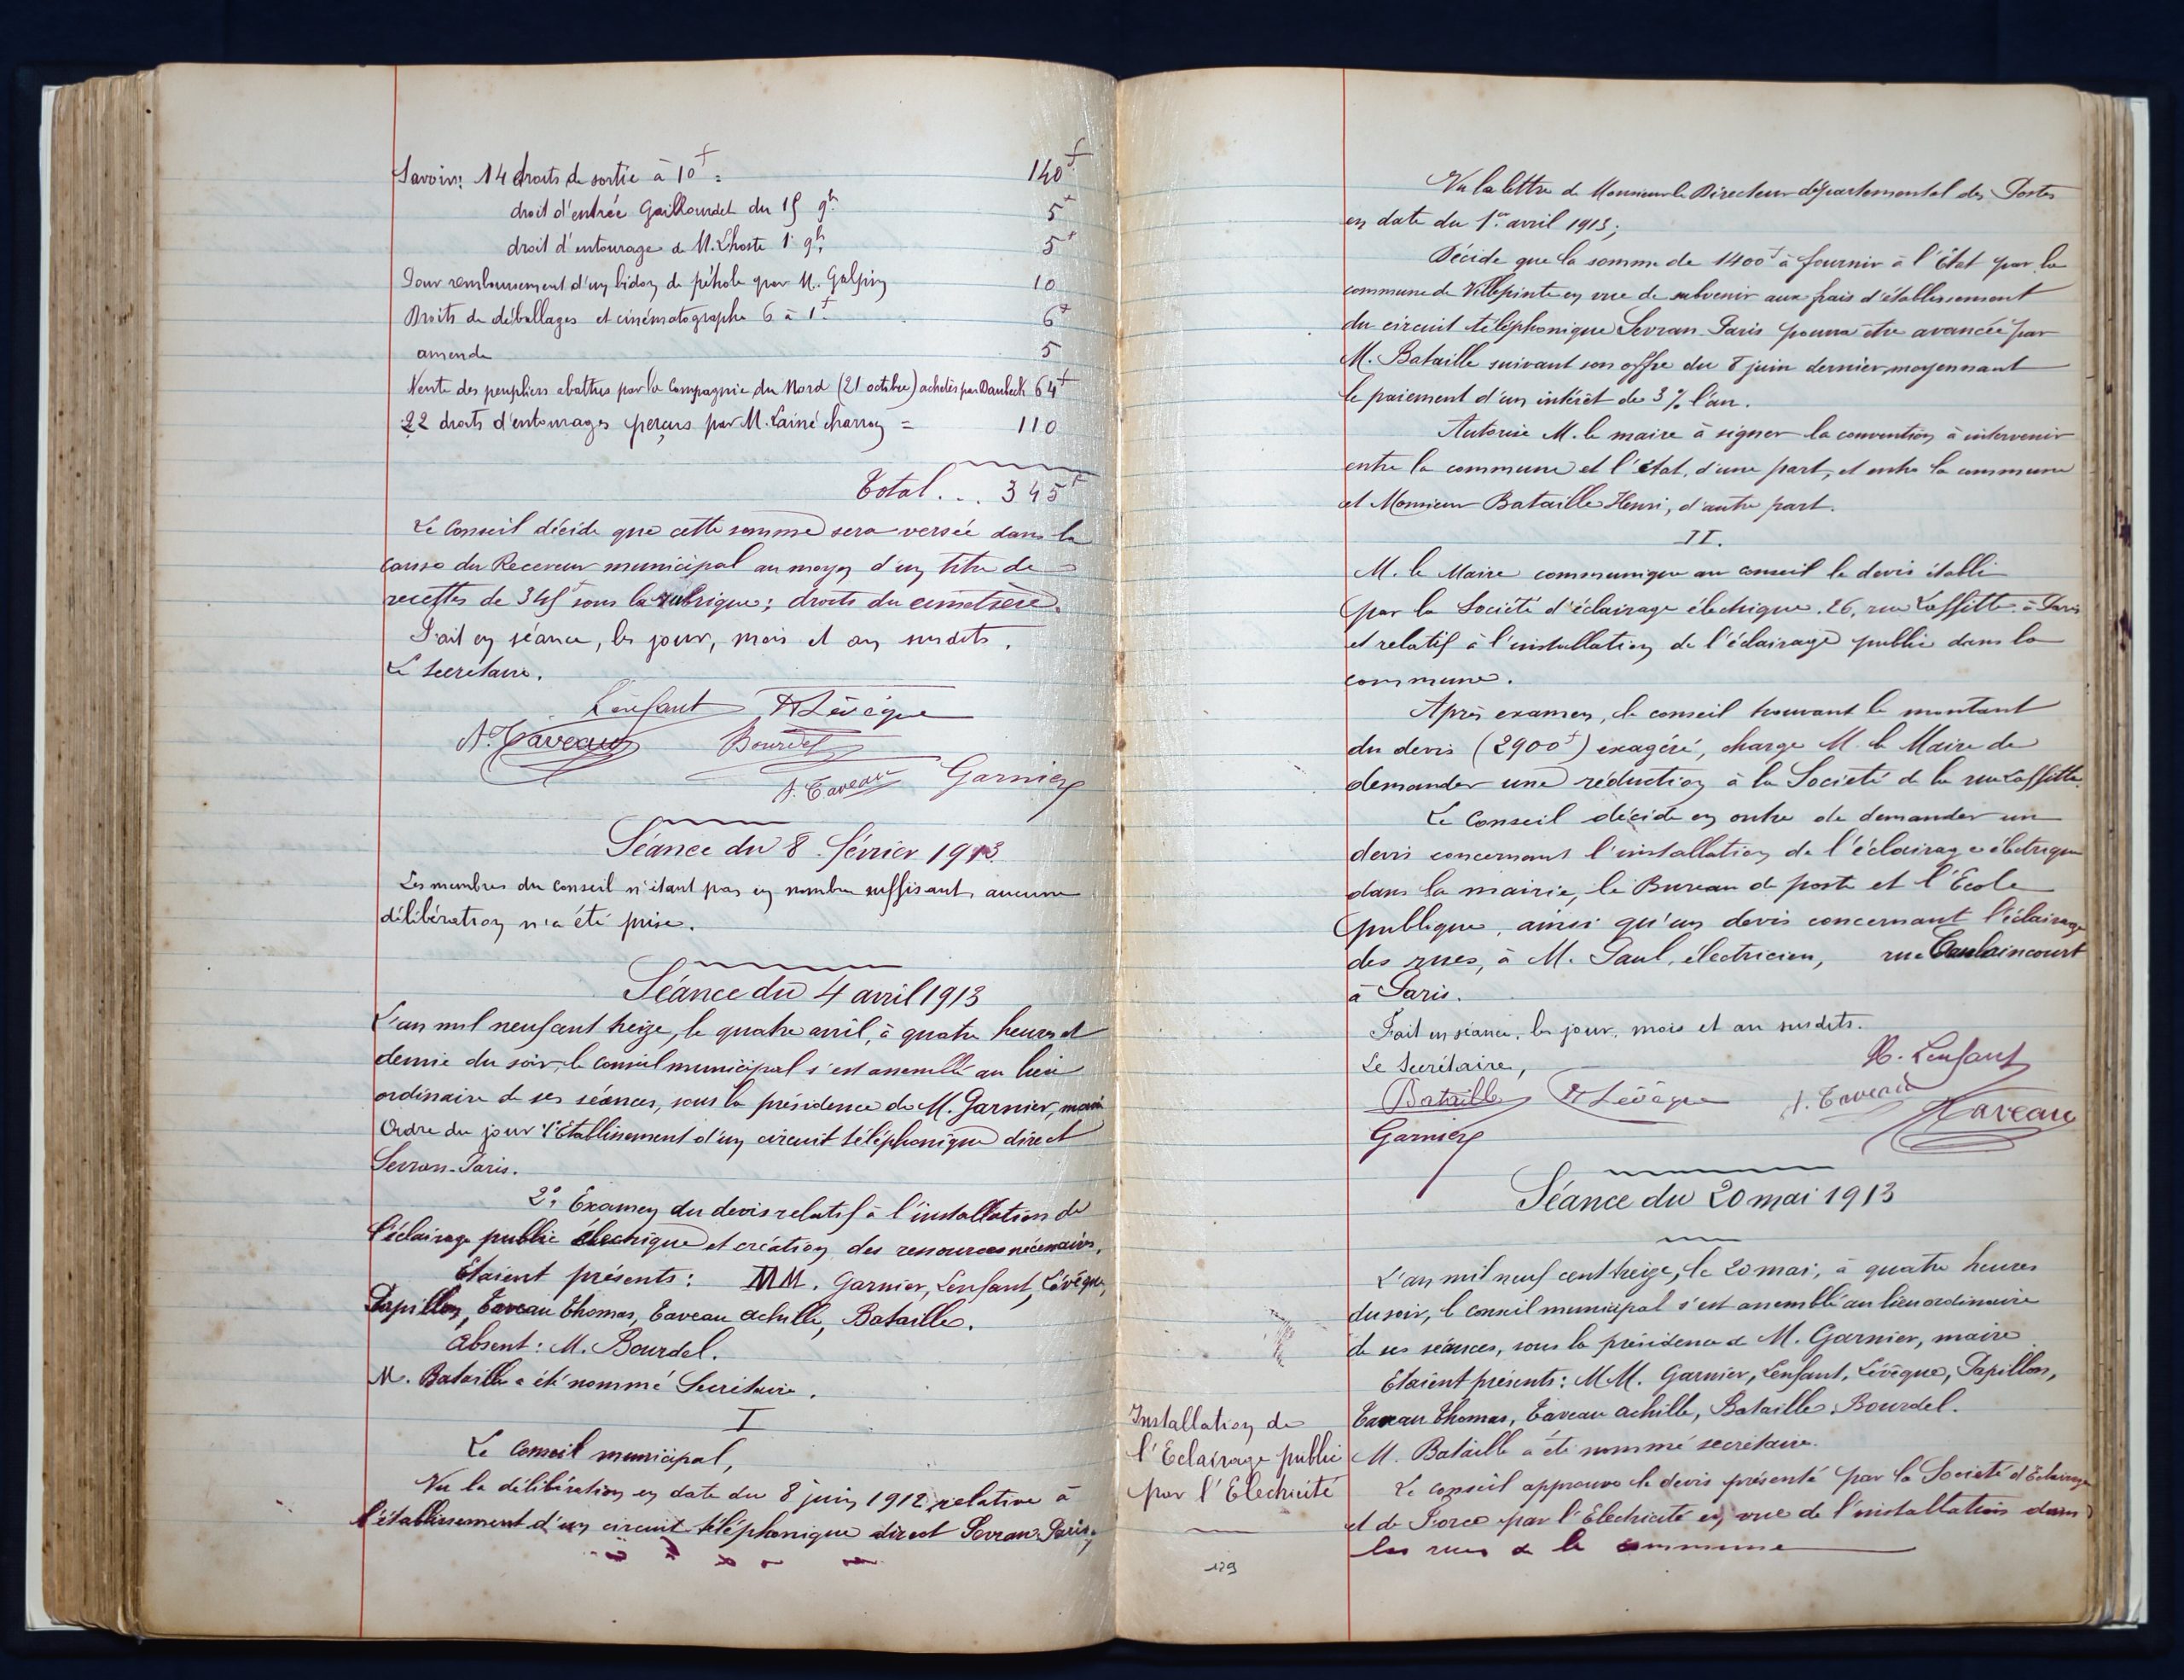 Savoir: 14 droits de sortie à 10f = 140f
droit d'entrée Gailhourdet du 15 9bre 5f
droit d'entourage de M. Lhoste 1er 9bre 5f
Pour remboursement d'un bidon de pétrole par M. Galpin 10
Droits de déballages et cinématographe 6 à 1f. 6f
amende 5
Vente des peupliers abattus par la Compagnie du Nord (21 octobre) achetés par Daubeck 64f
22 droits d'entourages perçus par M. Lainé charron = 110
Total... 345f
Le Conseil décide que cette somme sera versée dans la
caisse du Receveur municipal au moyen d'un titre de
recettes de 345f sous la rubrique: droits du cimetière.
Fait en séance, les jour, mois et an susdits.
Le Secrétaire.
Lenfant H Lévêque
A. Taveau Bourdel
A. Taveau Garnier
Séance du 8 février 1913
Les membres du conseil n'étant pas en nombre suffisant, aucune
délibération n'a été prise.
Séance du 4 avril 1913
L'an mil neuf cent treize, le quatre avril, à quatre heures et
demie du soir, le conseil municipal s'est assemblé au lieu
ordinaire de ses séances, sous la présidence de M. Garnier, maire
Ordre du jour 1° Etablissement d'un circuit téléphonique direct
Sevran-Paris.
2°. Examen du devis relatif à l'installation de
l'éclairage public électrique et création des ressources nécessaires.
Etaient présents: MM. Garnier, Lenfant, Lévêque,
Papillon, Taveau Thomas, Taveau Achille, Bataille.
Absent: M. Bourdel.
M. Bataille a été nommé Secrétaire.
I
Le Conseil municipal,
Vu la délibération en date du 8 juin 1912 relative à
l'établissement d'un circuit téléphonique direct Sevran-Paris,
Vu la lettre de Monsieur le Directeur départemental des Postes
en date du 1er avril 1913;
Décide que la somme de 1400f à fournir à l'État par la
commune de Villepinte en vue de subvenir aux frais d'établissement
du circuit téléphonique Sevran-Paris pourra être avancée par
M. Bataille suivant son offre du 8 juin dernier, moyennant
le paiement d'un intérêt de 3 % l'an.
Autorise M. le maire à signer la convention à intervenir
entre la commune et l'état, d'une part, et entre la commune
et Monsieur Bataille Henri, d'autre part.
II.
M. le Maire communique au conseil le devis établi
par la Société d'éclairage électrique. 26, rue Laffitte à Paris
et relatif à l'installation de l'éclairage public dans la
commune.
Après examen, le conseil trouvant le montant
du devis (2900f) exagéré, charge M. le Maire de
demander une réduction à la Société de la rue Laffitte.
Le Conseil décide en outre de demander un
devis concernant l'installation de l'éclairage électrique
dans la mairie, le Bureau de poste et l'Ecole
publique, ainsi qu'un devis concernant l'éclairage
des rues, à M. Paul, électricien, rue Caulaincourt
à Paris.
Fait en séance, les jour, mois et an susdits.
Le Secrétaire, N. Lenfant
Bataille H Lévêque A. Taveau Taveau
Garnier
Séance du 20 mai 1913
L'an mil neuf cent treize, le 20 mai, à quatre heures
du soir, le conseil municipal s'est assemblé au lieu ordinaire
de ses séances, sous la présidence de M. Garnier, maire
Etaient présents: MM. Garnier, Lenfant, Lévêque, Papillon,
Taveau Thomas, Taveau Achille, Bataille, Bourdel.
M. Bataille a été nommé secrétaire.
Installation de
l'Eclairage public
par l'Electricité
Le conseil approuve le devis présenté par la Société d'Eclairage
et de Force par l'Electricité en vue de l'installation dans
les rues de la commune
129